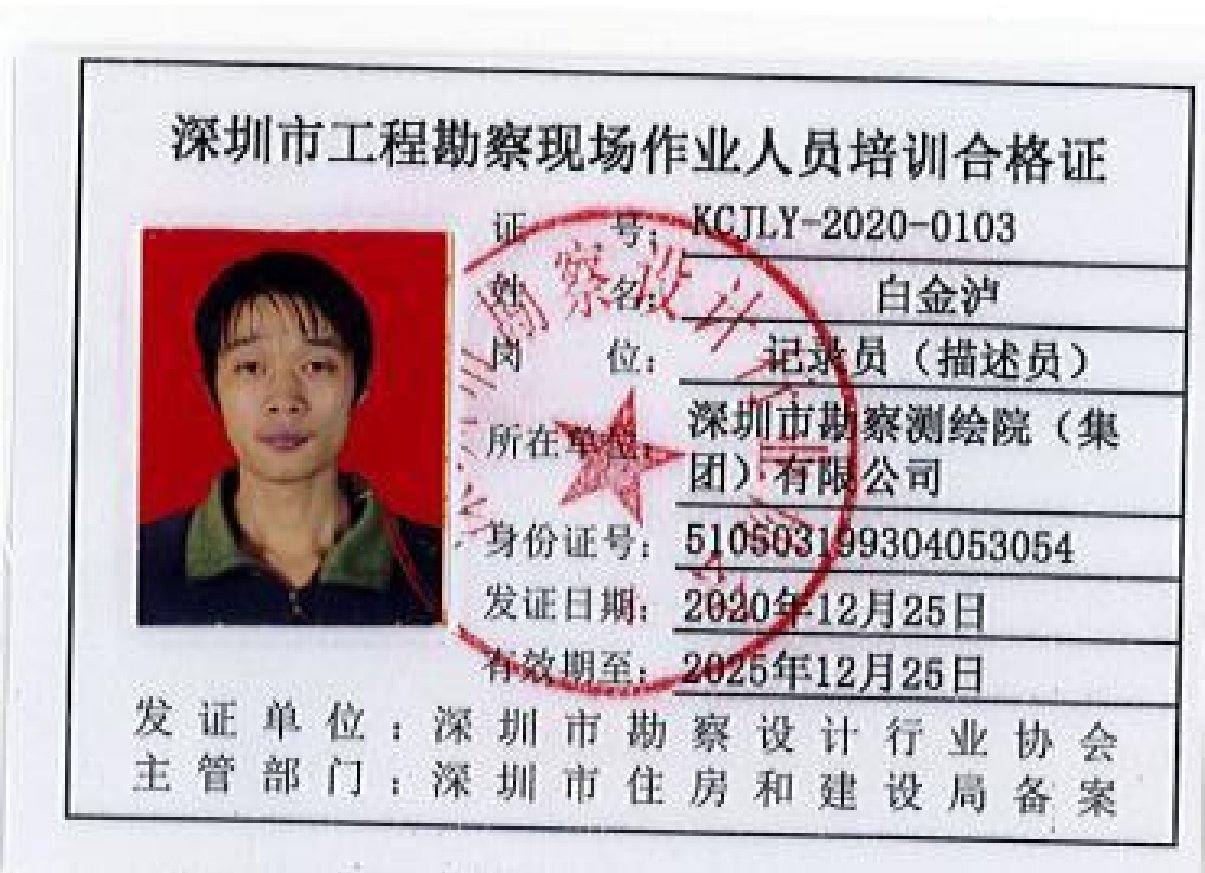 深圳市工程勘察现场作业人员培训合格证
证号：KCJLY-2020-0103
姓名：白金泸
岗位：记录员（描述员）
所在单位：深圳市勘察测绘院（集
团）有限公司
身份证号：510503199304053054
发证日期：2020年12月25日
有效期至：2025年12月25日
发证单位：深圳市勘察设计行业协会
主管部门：深圳市住房和建设局备案